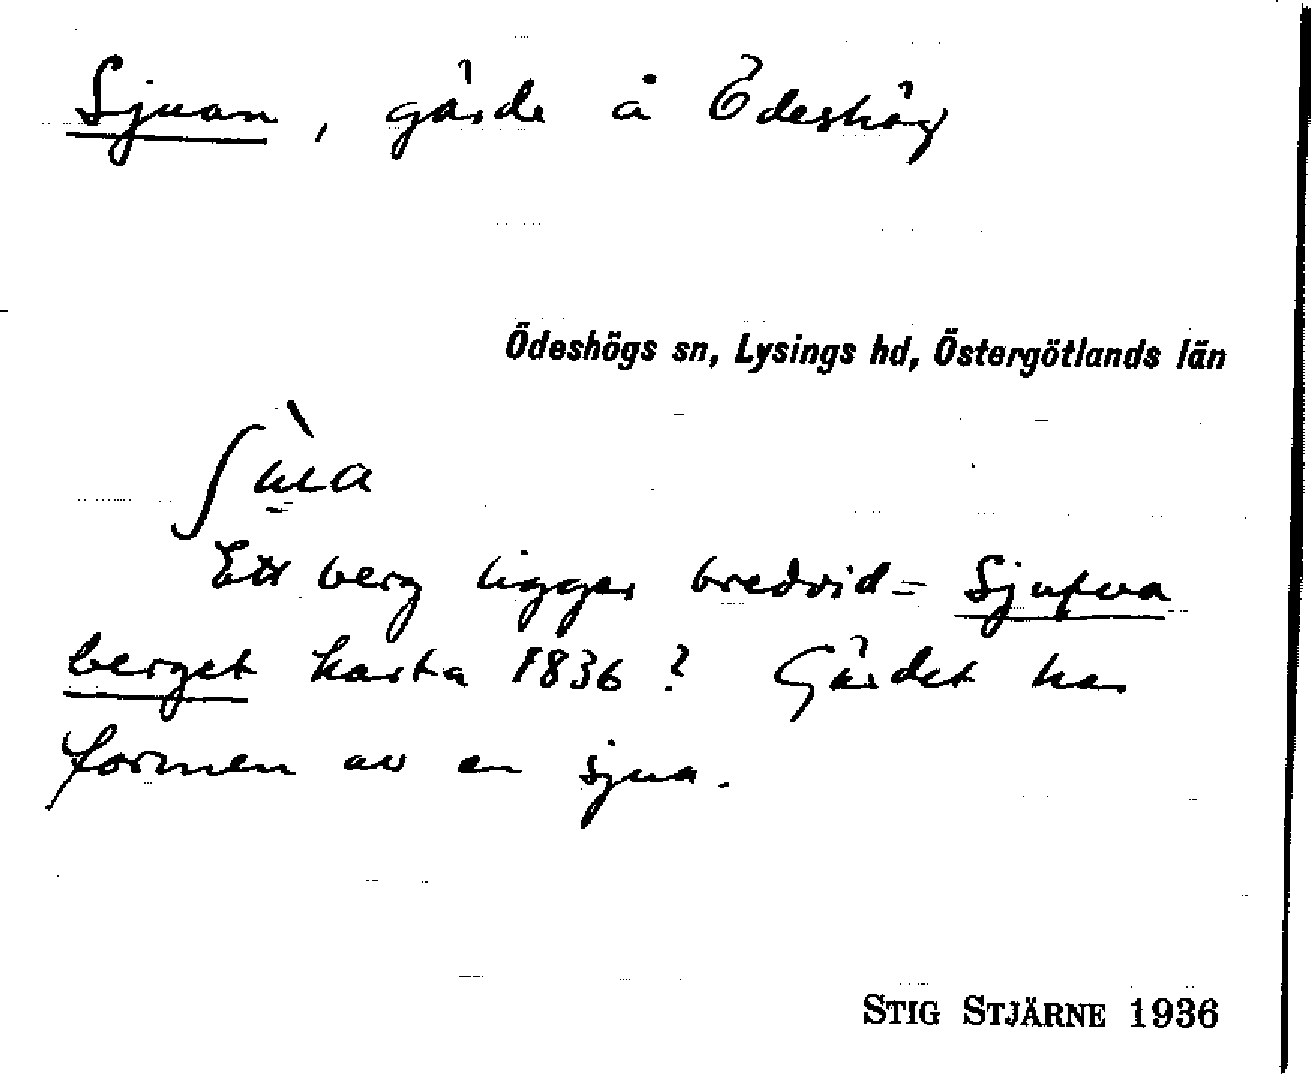 Sjuan, gärde å Ödeshög
Ödeshögs sn, Lysings hd, Östergötlands län
Ett berg ligger bredvid = Sjufva
berget karta 1836? Gärdet har
formen av en sjua.
STIG STJÄRNE 1936